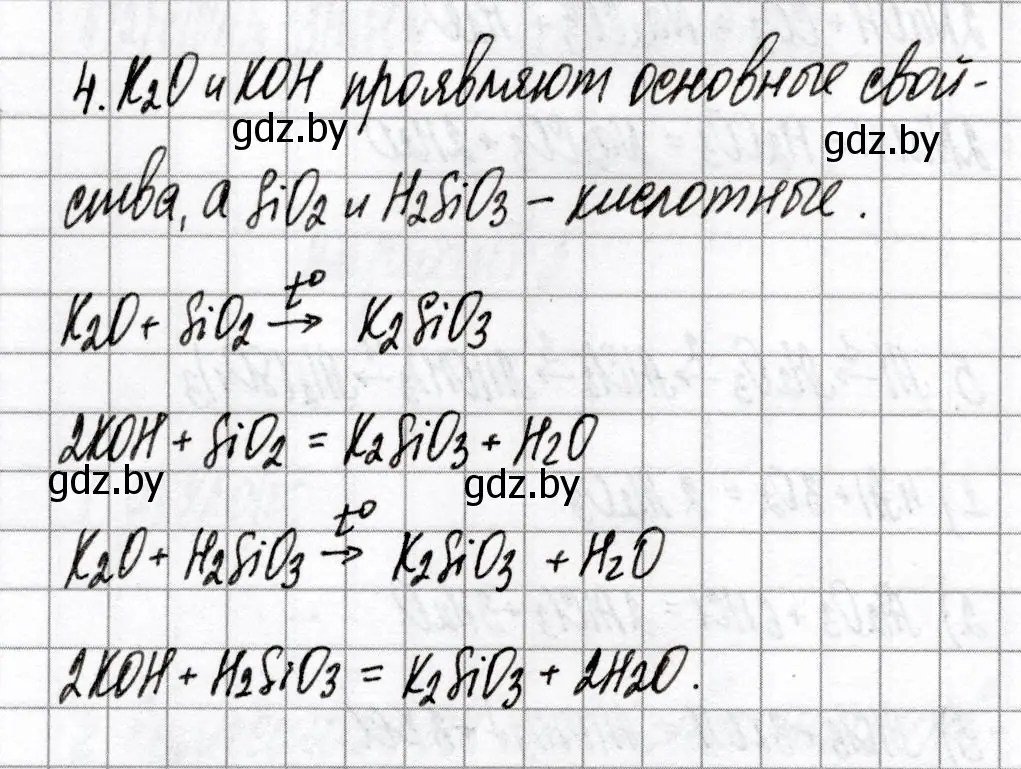 4. K₂O и KOH проявляют основные свой-
gdz.by gdz.by
ства, а SiO₂ и H₂SiO₃ – кислотные.
K₂O + SiO₂ →t° K₂SiO₃
2KOH + SiO₂ = K₂SiO₃ + H₂O
gdz.by gdz.by
K₂O + H₂SiO₃ →t° K₂SiO₃ + H₂O
2KOH + H₂SiO₃ = K₂SiO₃ + 2H₂O.